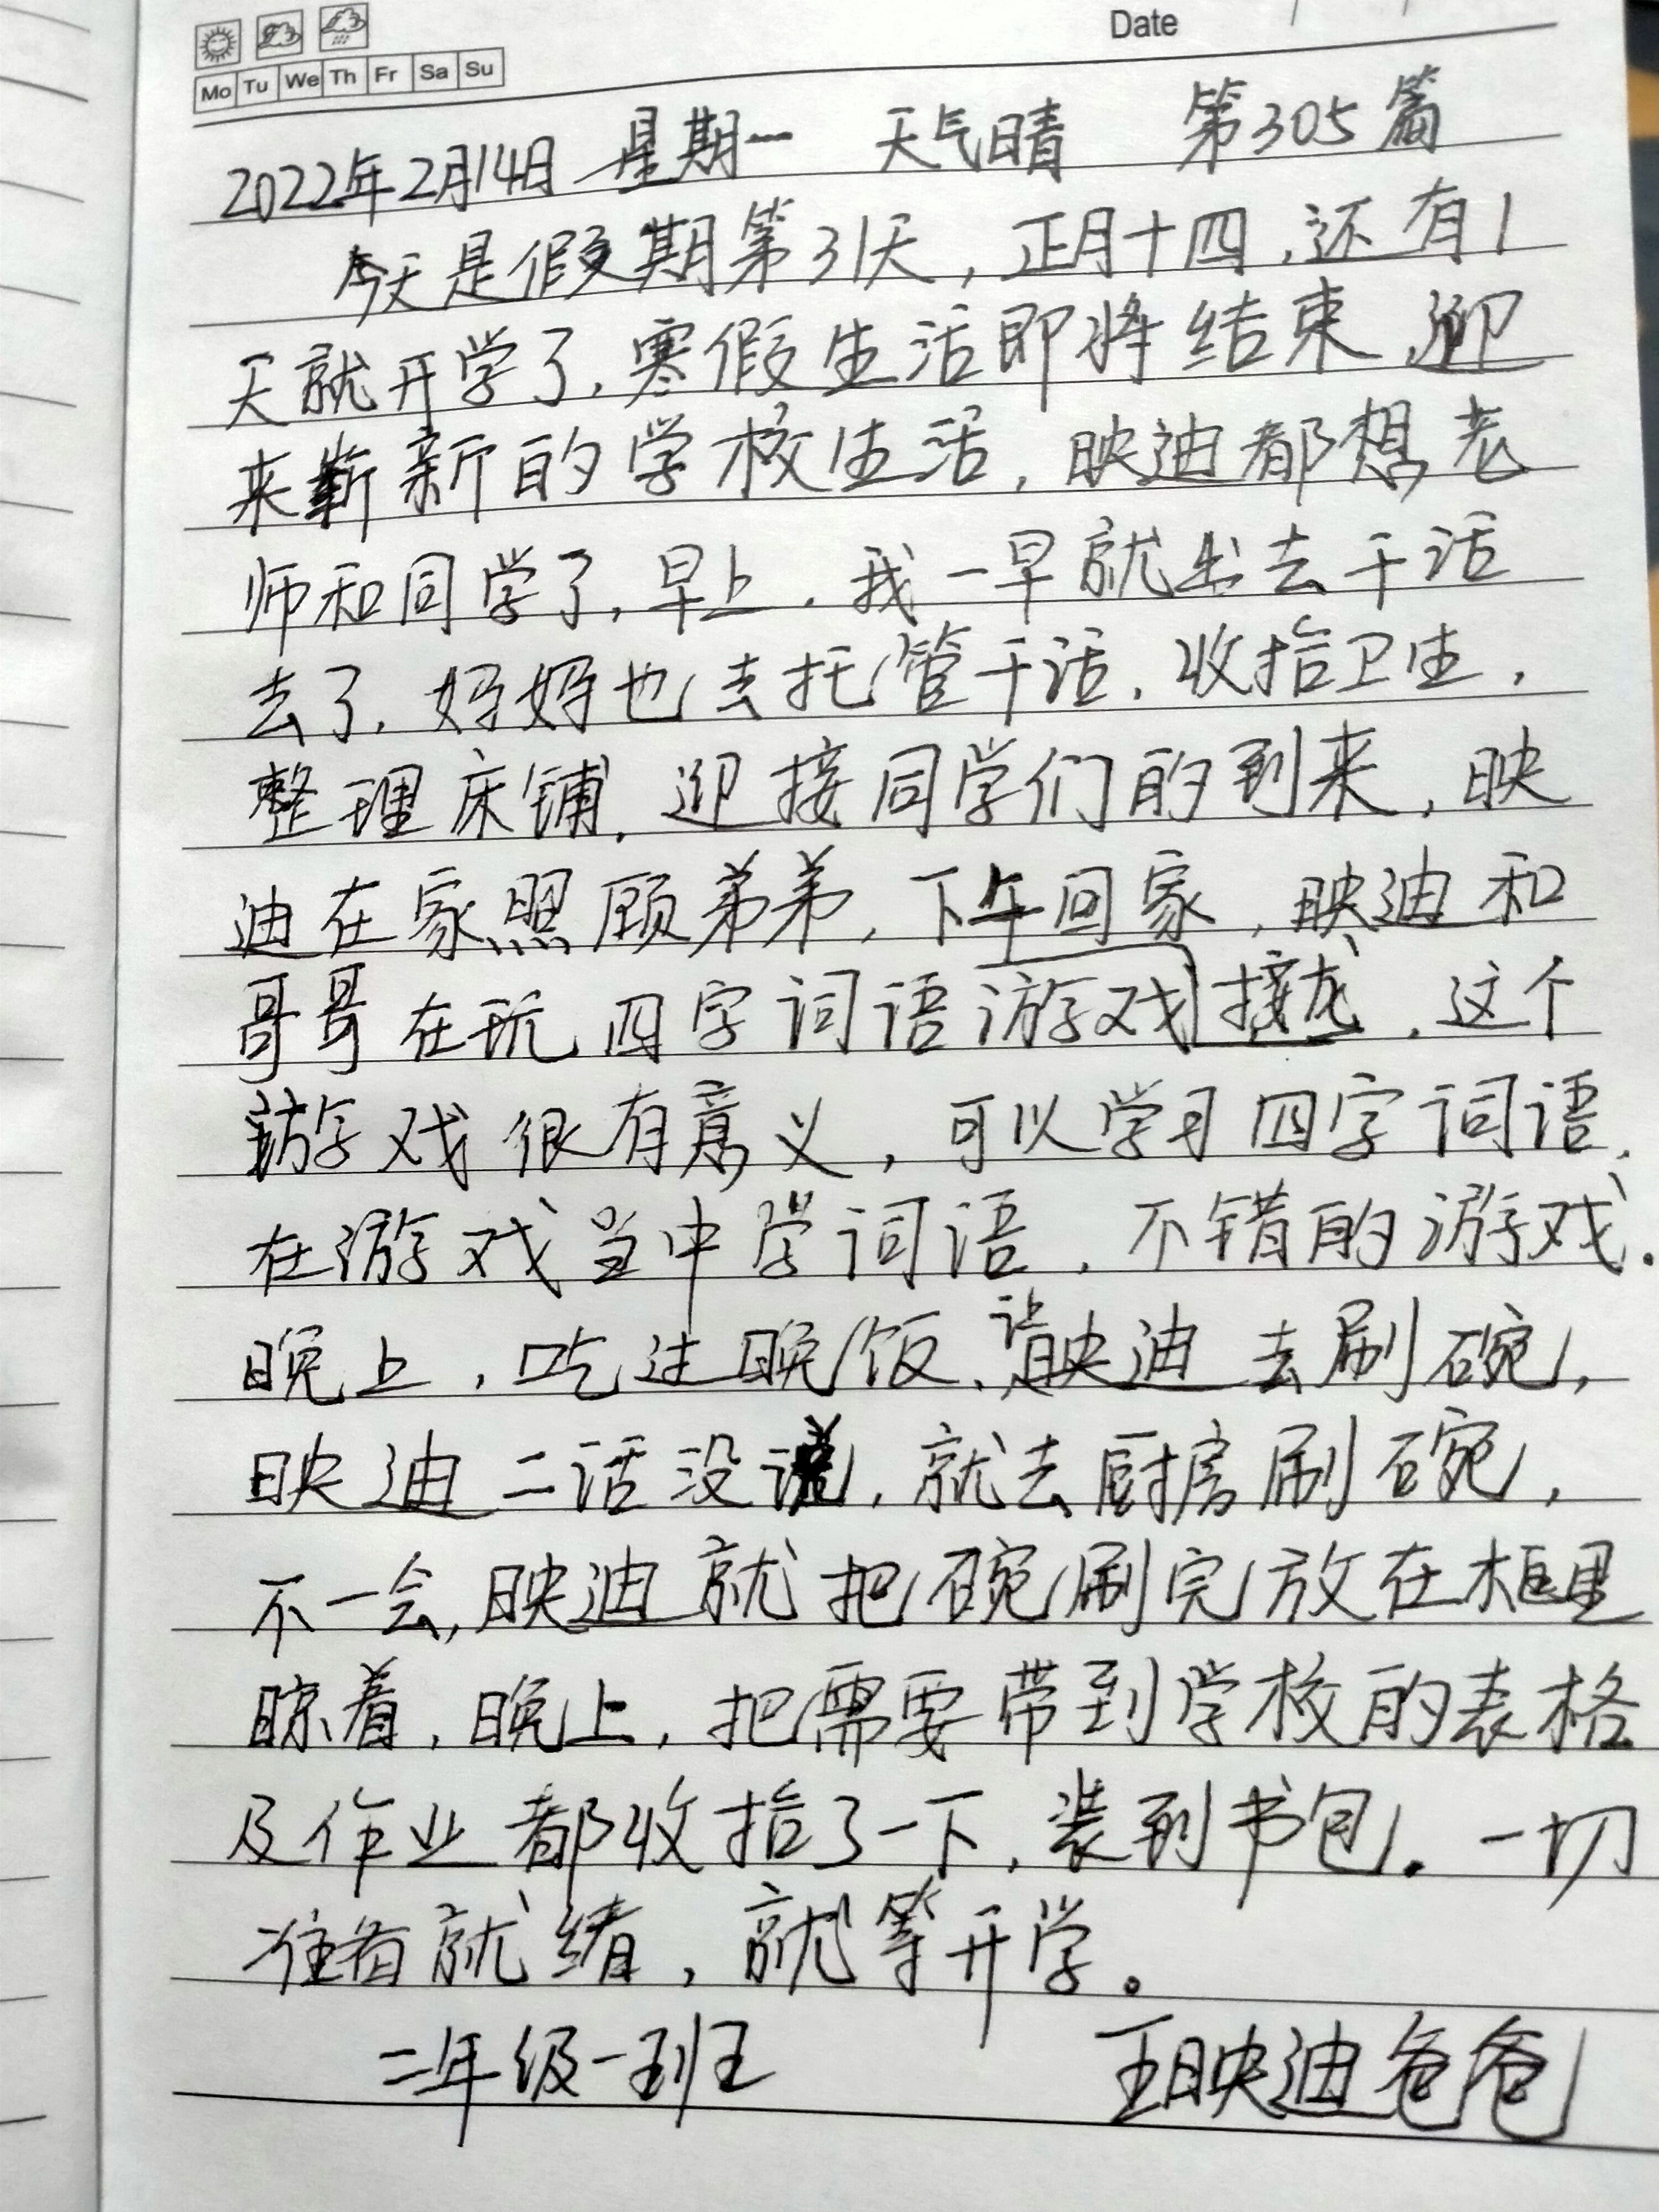 Date
Mo Tu We Th Fr Sa Su
2022年2月14日 星期一 天气晴 第305篇
今天是假期第31天，正月十四，还有1
天就开学了，寒假生活即将结束，迎
来崭新的学校生活，映迪都想老
师和同学了，早上，我一早就出去干活
去了，妈妈也去托管干活，收拾卫生，
整理床铺，迎接同学们的到来，映
迪在家照顾弟弟，下午回家，映迪和
哥哥在玩四字词语游戏接龙，这个
游戏很有意义，可以学习四字词语，
在游戏当中学词语，不错的游戏．
晚上，吃过晚饭，让映迪去刷碗，
映迪二话没说，就去厨房刷碗，
不一会，映迪就把碗刷完放在框里
晾着，晚上，把需要带到学校的表格
及作业都收拾了一下，装到书包。一切
准备就绪，就等开学。
二年级一班 王映迪爸爸